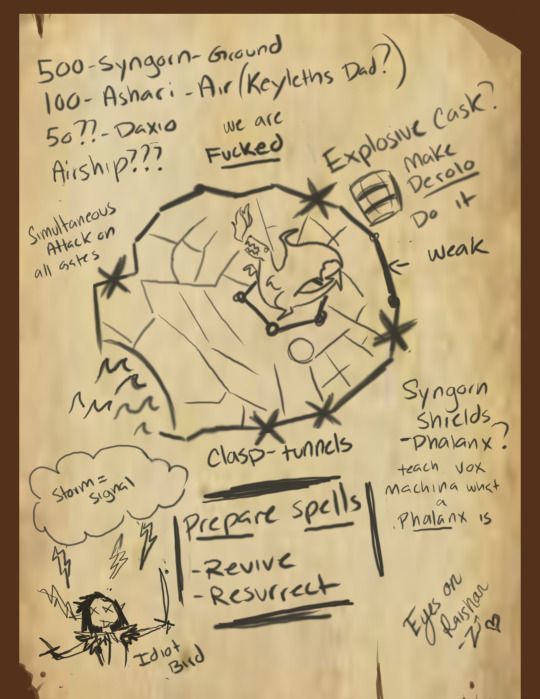 500-Syngorn-Ground
100- Ashari - Air (Keyleths Dad?)
50??-Daxio
Airship???
we are
Fucked
Explosive Cask?
Make
Derolo
Do it
Simultaneous
Attack on
all gates
weak
Clasp-tunnels
Syngorn
Shields
-Phalanx?
teach vox
machina what
a
Phalanx is
Storm =
signal
Prepare spells
-Revive
-Resurrect
Idiot
Bird
Eyes on
Raishan